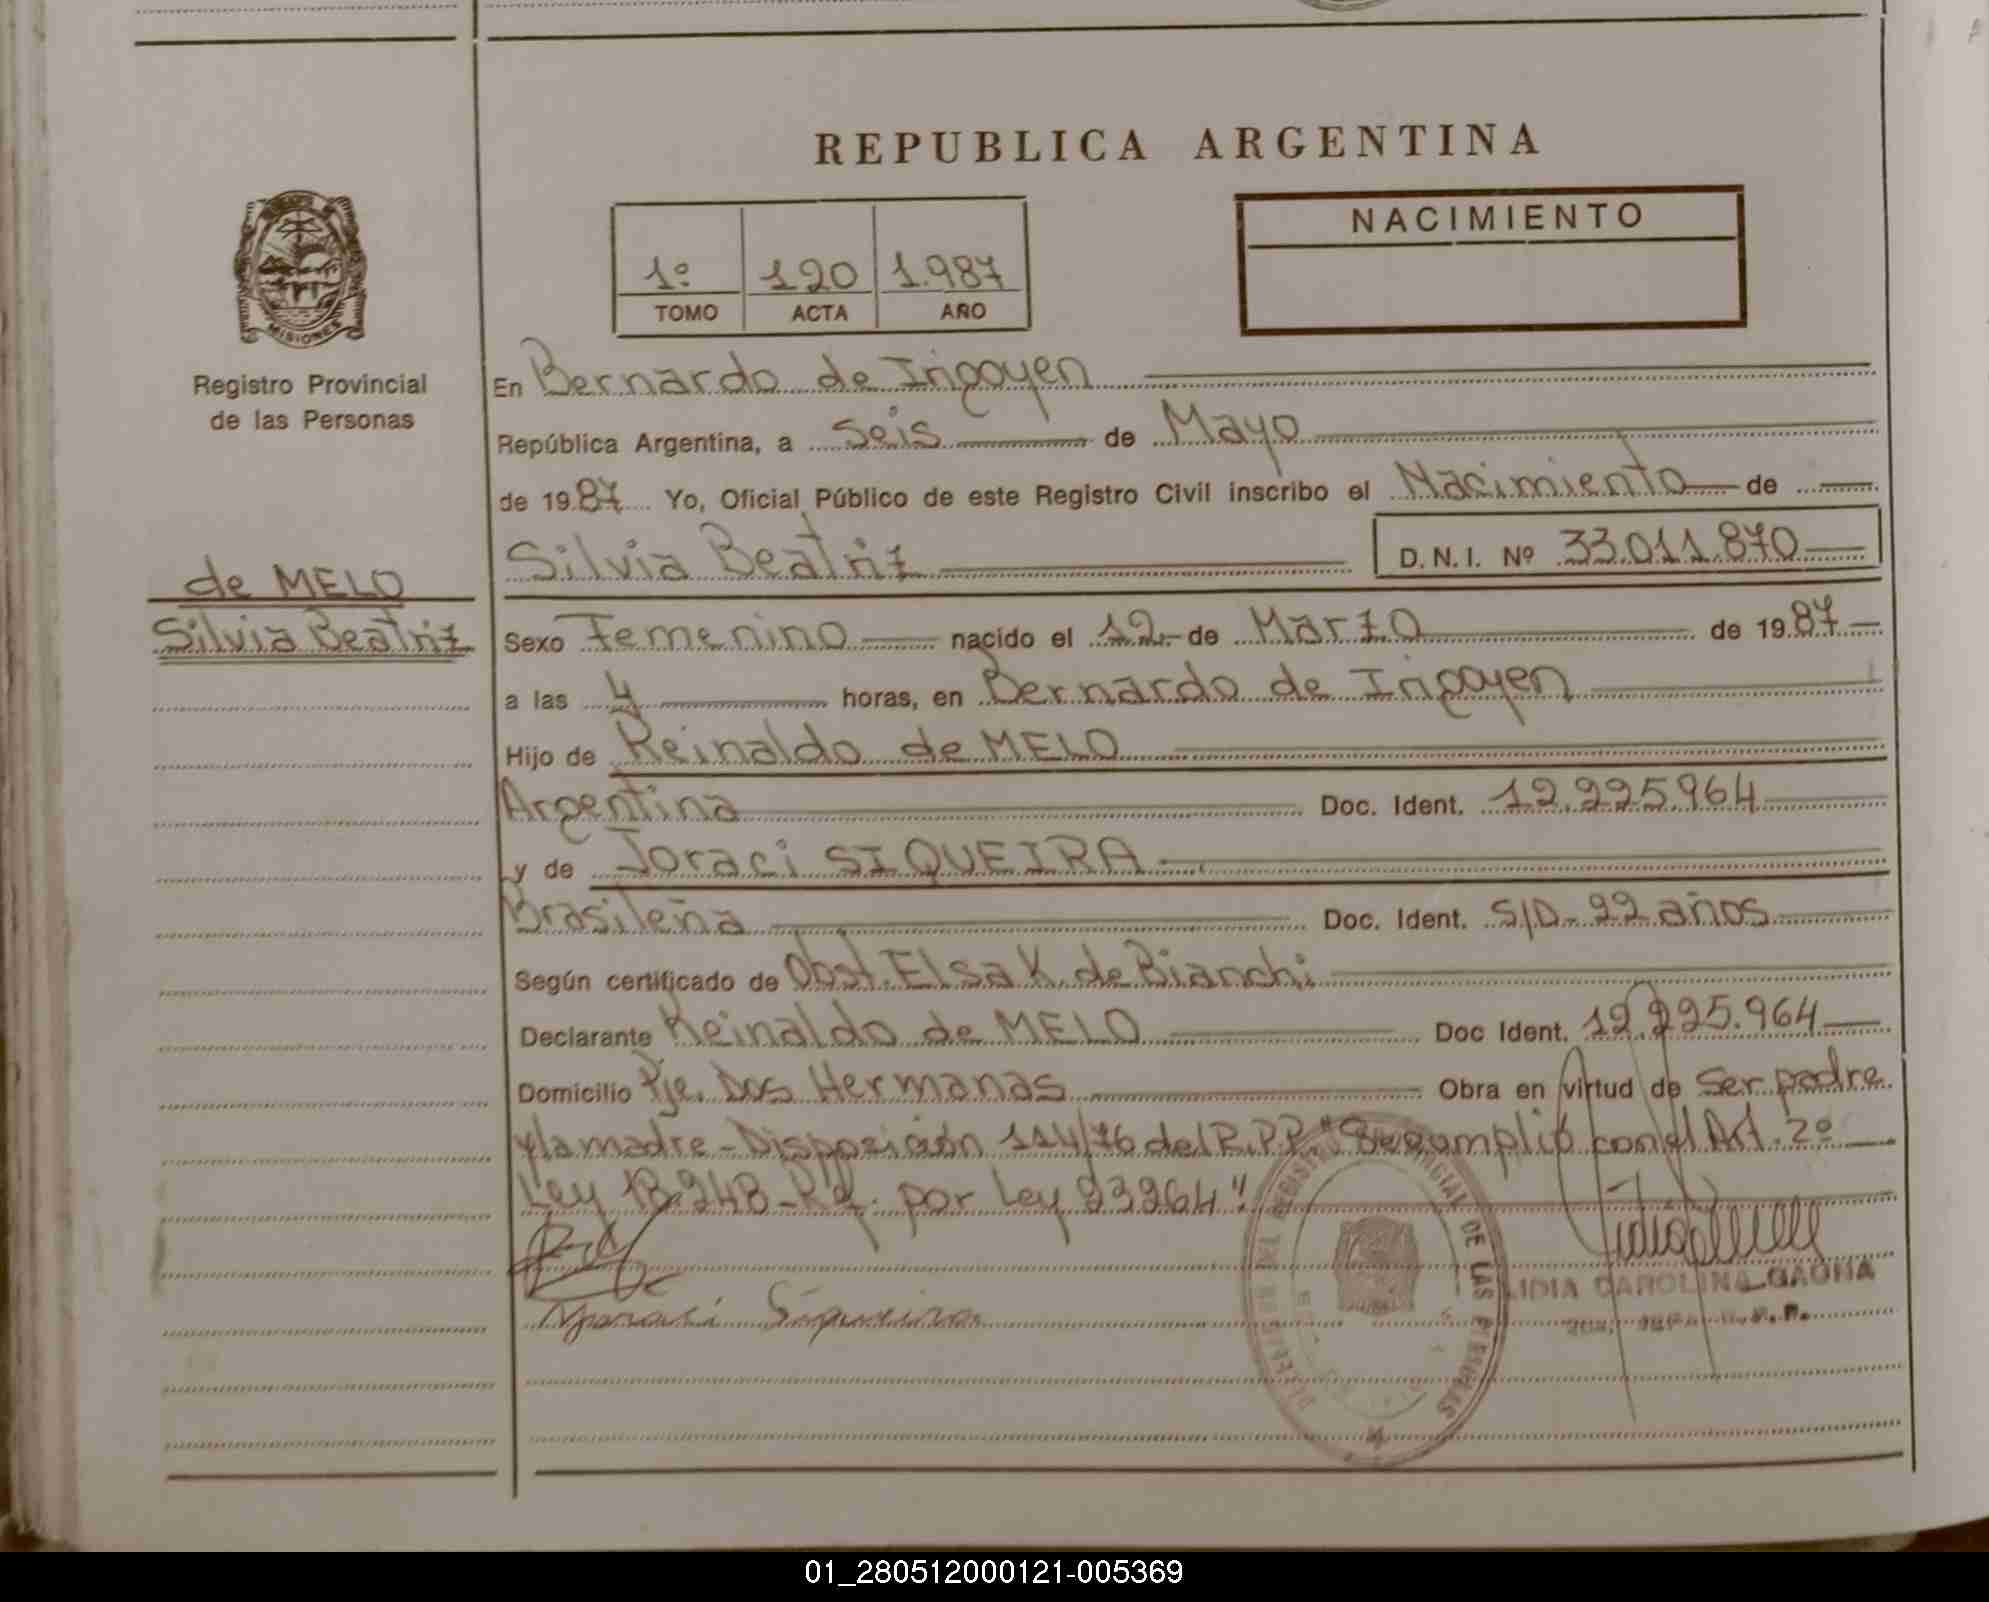 REPUBLICA ARGENTINA
NACIMIENTO
1º 120 1.987
TOMO ACTA AÑO
MISIONES
Registro Provincial
de las Personas
de MELO
Silvia Beatriz
En Bernardo de Irigoyen
República Argentina, a seis de Mayo
de 1987 Yo, Oficial Público de este Registro Civil inscribo el Nacimiento de
Silvia Beatriz D.N.I. Nº 33.011.870
Sexo Femenino nacido el 12 de Marzo de 1987
a las 4 horas, en Bernardo de Irigoyen
Hijo de Reinaldo de MELO
Argentina Doc. Ident. 12.225.964
y de Joraci SIQUEIRA
Brasileña Doc. Ident. S/D- 22 años
Según certificado de Obst. Elsa K. de Bianchi
Declarante Reinaldo de MELO Doc Ident. 12.225.964
Domicilio Pje. Dos Hermanas Obra en virtud de Ser padre
y la madre - Disposición 114/76 del R.P.P. "Se cumplió con el Art. 2º
Ley 18.248 - por Ley 23264"
Siqueira
REGISTRO PROVINCIAL DE LAS PERSONAS
LIDIA CAROLINA GAONA